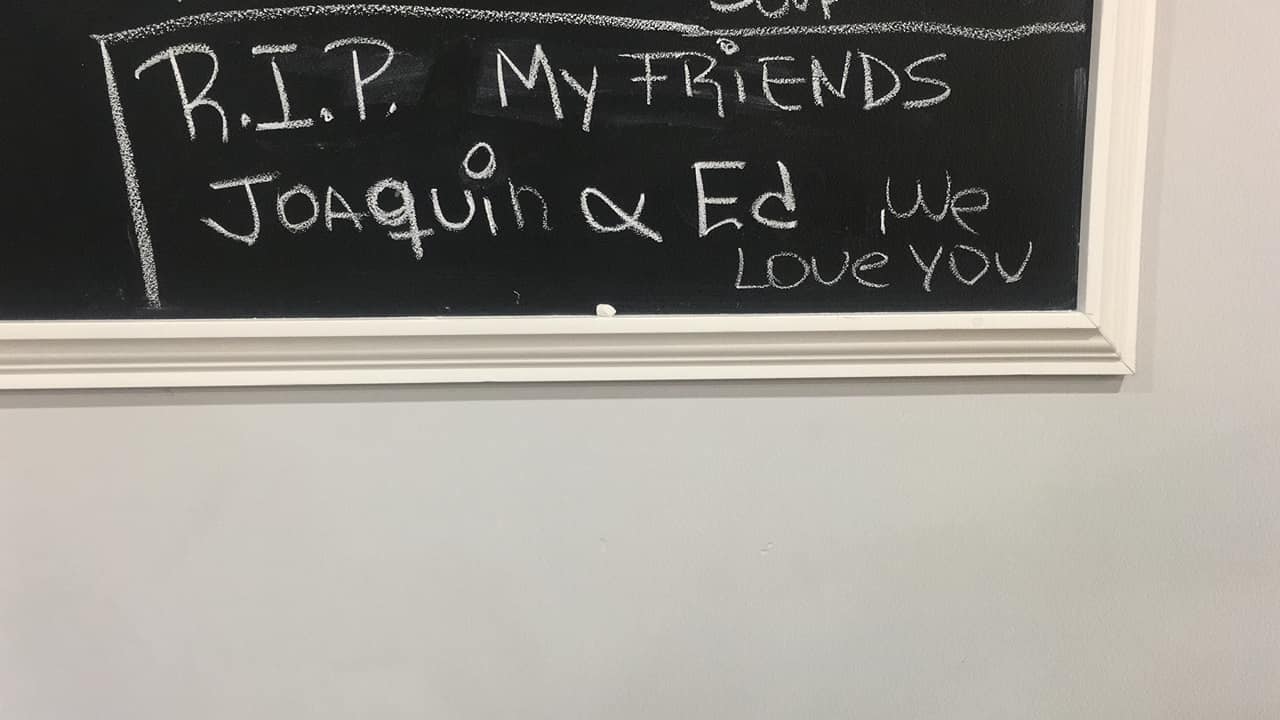 R.I.P. My FRiENDS
JOAquin & Ed We
Love you